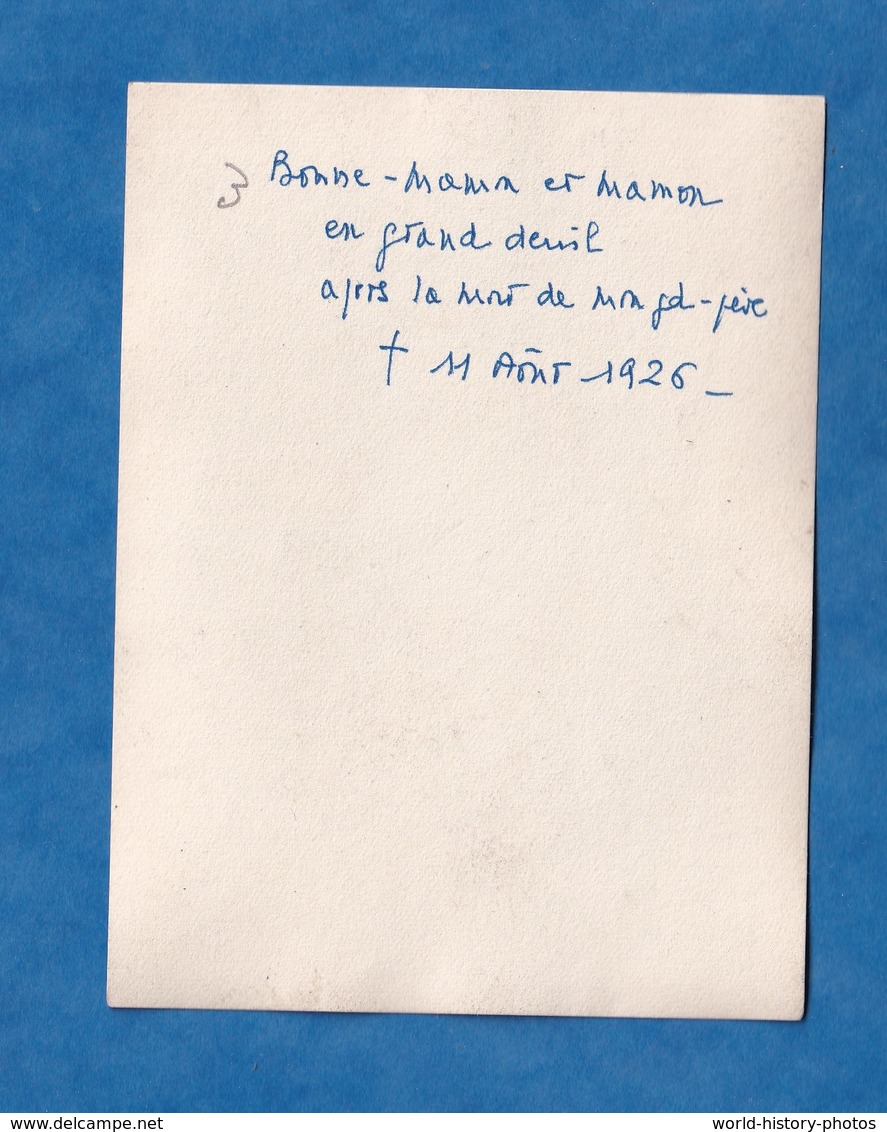 3 Bonne-Maman et Maman
en grand deuil
après la mort de mon gd-père
† 11 Août 1926_
www.delcampe.net
world-history-photos